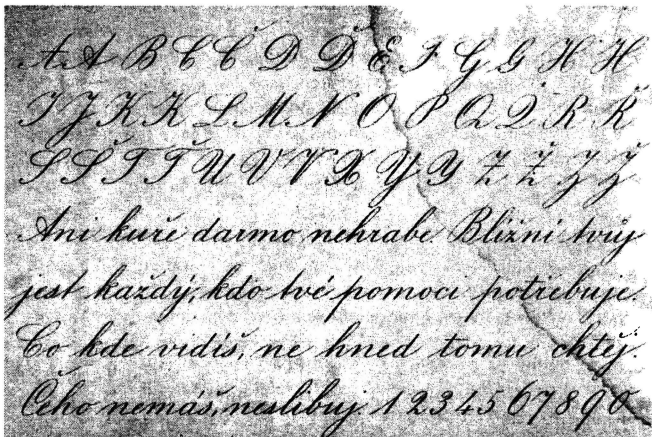 A A B C Č D Ď E F G G H H
I J K K L M N O P Q Q R Ř
S Š T Ť U V V X Y Y Z Ž Z Ž
Ani kuře darmo nehrabe. Bližní tvůj
jest každý, kdo tvé pomoci potřebuje.
Co kde vidíš, ne hned tomu chtěj.
Čeho nemáš, neslibuj. 1 2 3 4 5 6 7 8 9 0